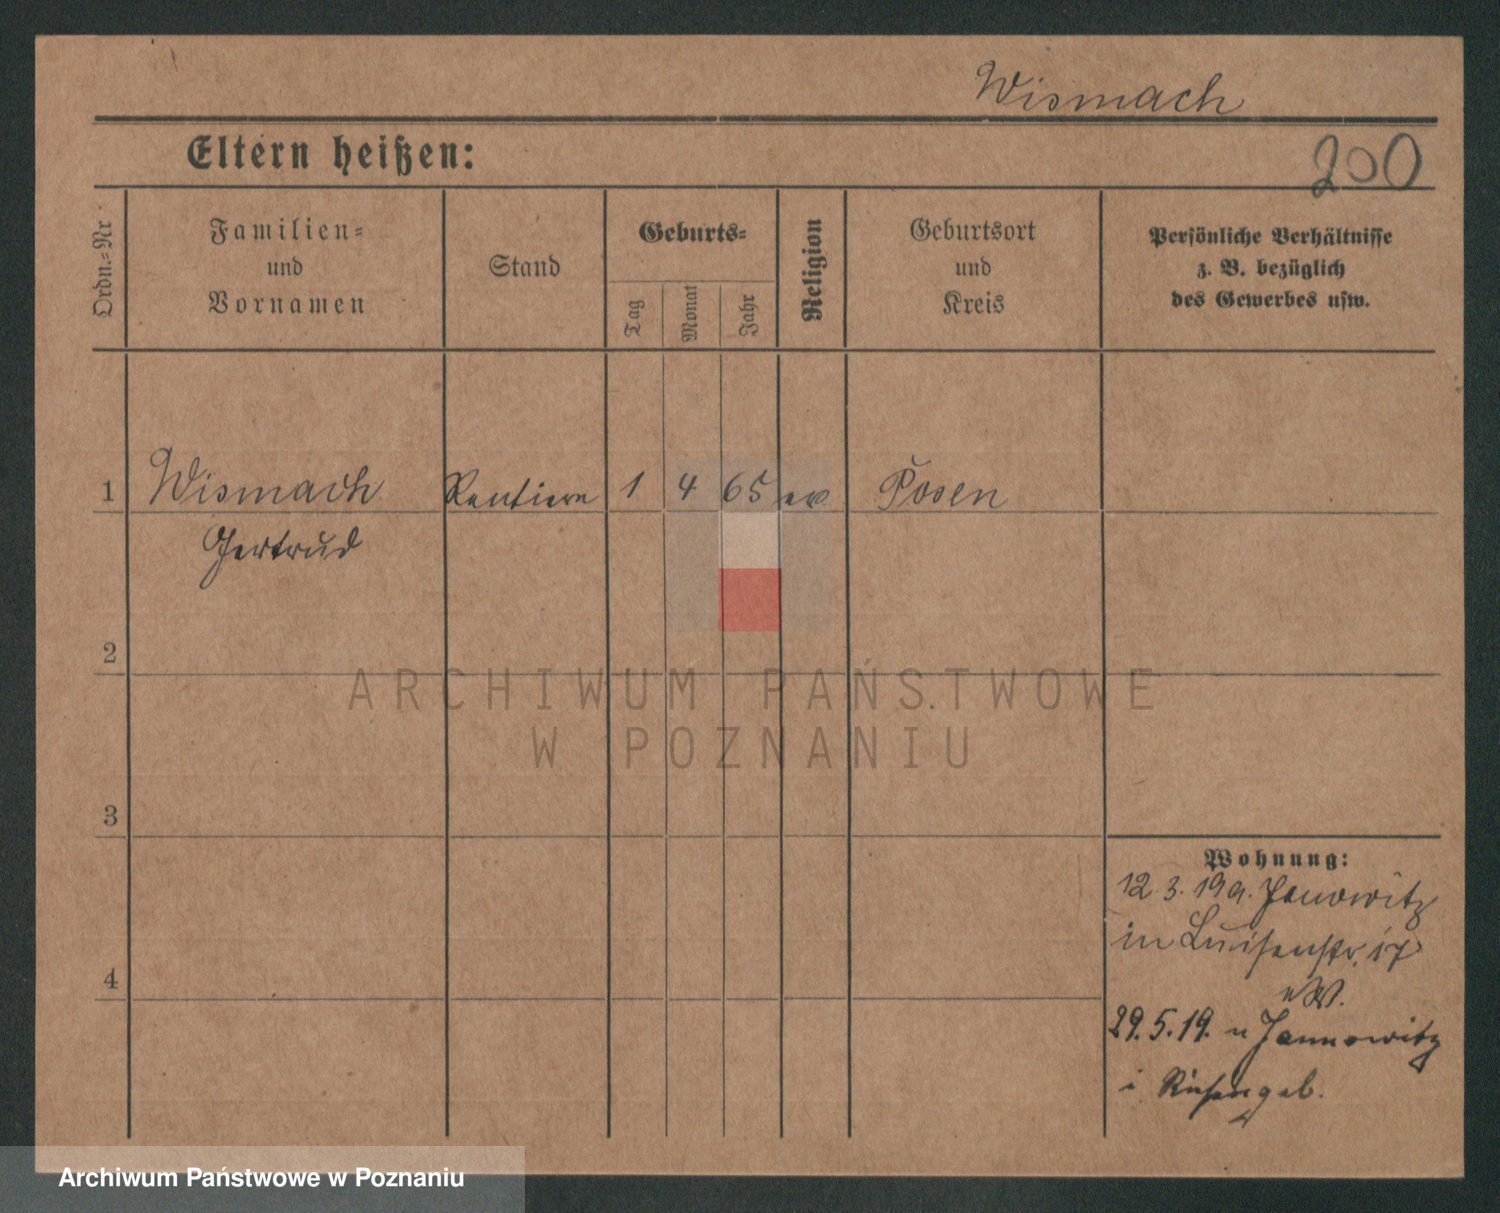 Wismach
Eltern heißen:
200
Ordn.-Nr
Familien-
und
Vornamen
Stand
Geburts-
Tag
Monat
Jahr
Religion
Geburtsort
und
Kreis
Persönliche Verhältnisse
z. B. bezüglich
des Gewerbes usw.
1 Wismach Rentiere 1 4 65 ev Posen
Gertrud
2
3
4
Wohnung:
12.3.19 a. Janowitz
in Luisenstr. 17
29.5.19. n Jannowitz
i Riesengeb.
ARCHIWUM PAŃSTWOWE
W POZNANIU
Archiwum Państwowe w Poznaniu